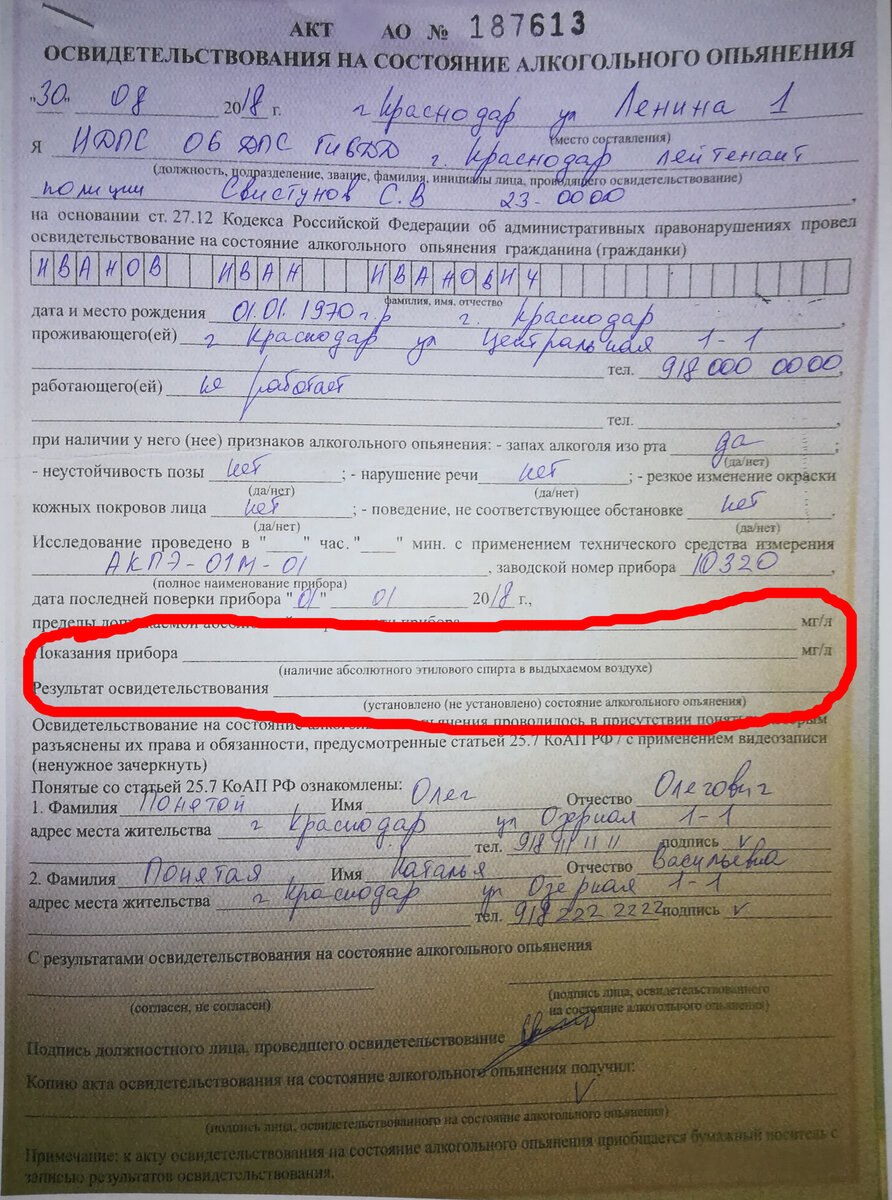 АКТ АО № 187613
ОСВИДЕТЕЛЬСТВОВАНИЯ НА СОСТОЯНИЕ АЛКОГОЛЬНОГО ОПЬЯНЕНИЯ
"30" 08 2018 г. г Краснодар ул Ленина 1
(место составления)
Я ИДПС ОБ ДПС ГИБДД г. Краснодар лейтенант
(должность, подразделение, звание, фамилия, инициалы лица, проводящего освидетельствование)
полиции Свистунов С.В 23-0000,
на основании ст. 27.12 Кодекса Российской Федерации об административных правонарушениях провел
освидетельствование на состояние алкогольного опьянения гражданина (гражданки)
ИВАНОВ ИВАН ИВАНОВИЧ
фамилия, имя, отчество
дата и место рождения 01.01.1970 г.р г. Краснодар,
проживающего(ей) г Краснодар ул Центральная 1-1
тел. 918 000 0000,
работающего(ей) не работает
тел. ,
при наличии у него (нее) признаков алкогольного опьянения: - запах алкоголя изо рта да;
(да/нет)
- неустойчивость позы нет; - нарушение речи нет; - резкое изменение окраски
(да/нет) (да/нет)
кожных покровов лица нет; - поведение, не соответствующее обстановке нет
(да/нет) (да/нет)
Исследование проведено в "____" час. "____" мин. с применением технического средства измерения
АКПЭ-01М-01, заводской номер прибора 10320,
(полное наименование прибора)
дата последней поверки прибора "01" 01 2018 г.,
пределы допускаемой абсолютной прибора мг/л
Показания прибора мг/л
(наличие абсолютного этилового спирта в выдыхаемом воздухе)
Результат освидетельствования
(установлено (не установлено) состояние алкогольного опьянения)
Освидетельствование на состояние алкогольного опьянения проводилось в присутствии понятых, которым
разъяснены их права и обязанности, предусмотренные статьей 25.7 КоАП РФ / с применением видеозаписи
(ненужное зачеркнуть)
Понятые со статьей 25.7 КоАП РФ ознакомлены:
1. Фамилия Понятой Имя Олег Отчество Олегович
адрес места жительства г Краснодар ул Озерная 1-1
тел. 918 111 11 11 подпись v
2. Фамилия Понятая Имя Наталья Отчество Васильевна
адрес места жительства г Краснодар ул Озерная 1-1
тел. 918 222 2222 подпись v
С результатами освидетельствования на состояние алкогольного опьянения
(согласен, не согласен) (подпись лица, освидетельствованного
на состояние алкогольного опьянения)
Подпись должностного лица, проведшего освидетельствование
Копию акта освидетельствования на состояние алкогольного опьянения получил:
v
(подпись лица, освидетельствованного на состояние алкогольного опьянения)
Примечание: к акту освидетельствования на состояние алкогольного опьянения приобщается бумажный носитель с
записью результатов освидетельствования.